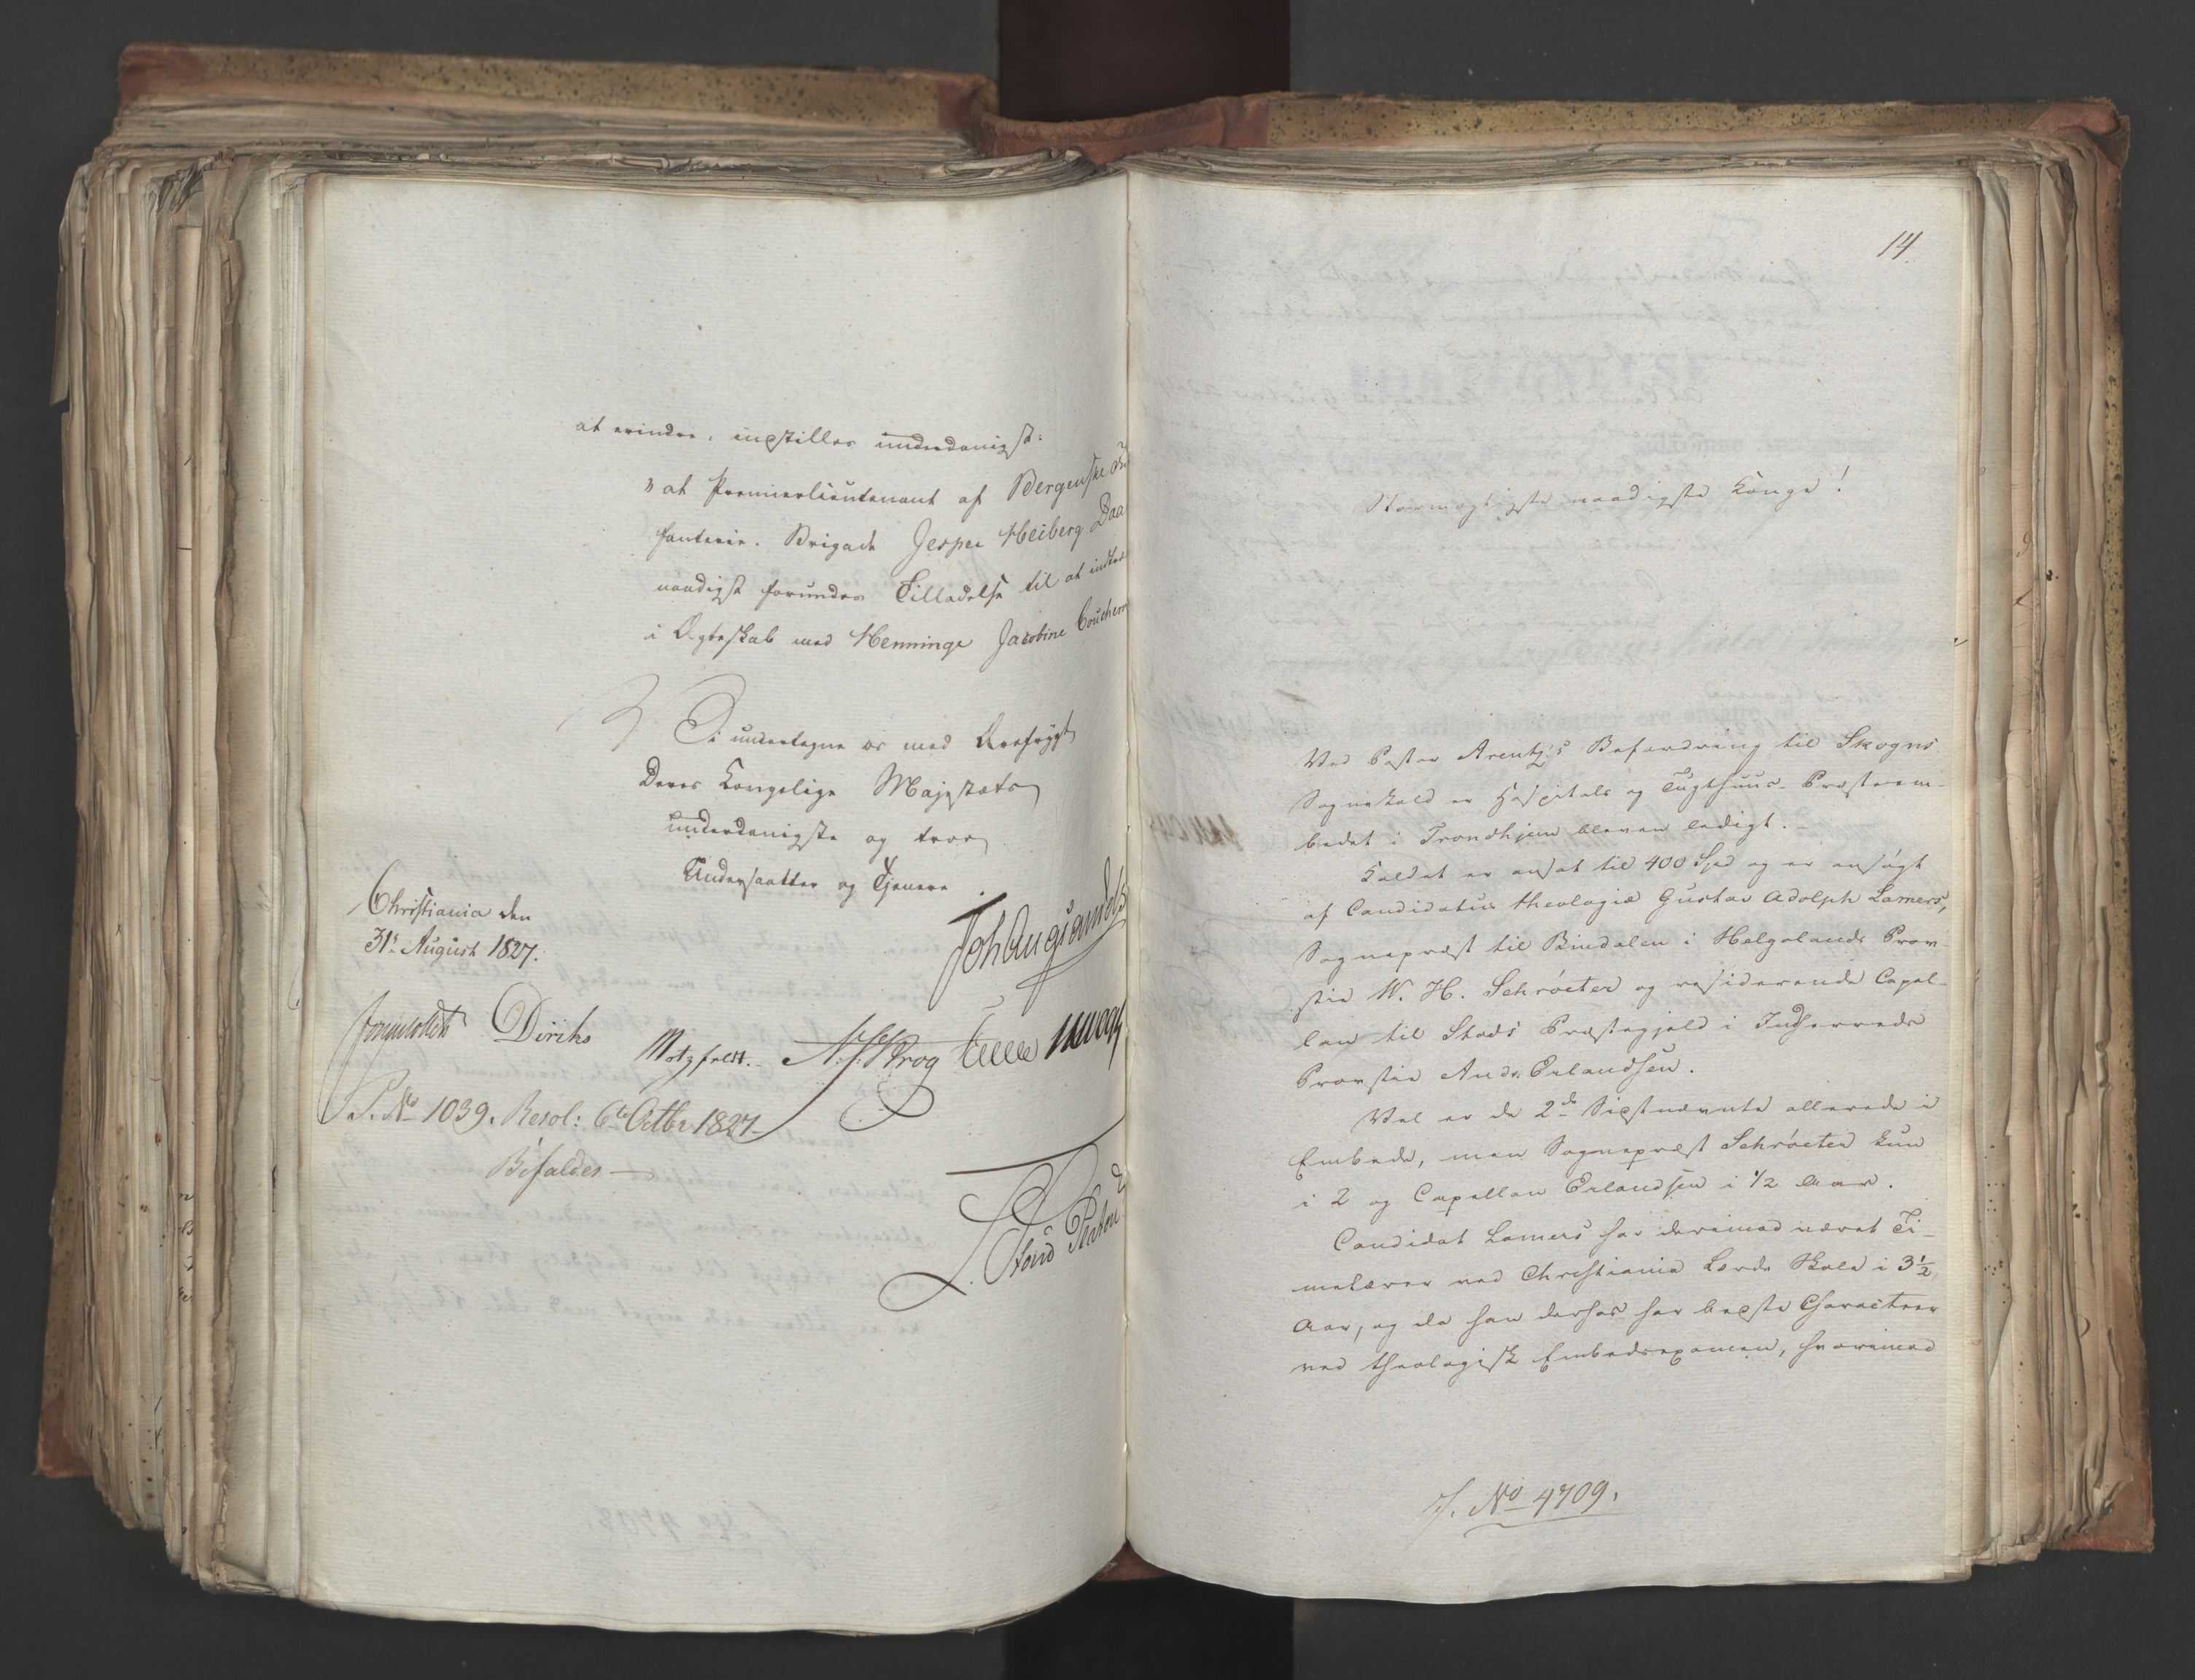 at erindre, indstilles underdanigst:
"at Premierlieutenant af Bergenske In
fanterie-Brigade Jesper Heiberg Daa
naadigst forundes Tilladelse til at indtræ
i Ægteskab med Henninge Jacobine Coucheron
Vi undertegne os med Ærefrygt
Deres Kongelige Majestæts
underdanigste og troe
Undersaatter og Tjenere.
Christiania den
31te August 1827.
Joh Aug Sandels
Sommerhielm Diriks Motzfeldt. A. S. Krog Treschow
S. No 1039. Resol: 6te Octbr 1827
Bifaldes
14.
Stormægtigste naadigste Konge!
Ved Pastor Arentz's Befordring til Skogns
Sognekald er Hospitals og Tugthuus-Præsteem-
bedet i Trondhjem bleven ledigt.
Kaldet er ansat til 400 Spd og er ansøgt
af Candidatus theologiæ Gustav Adolph Lamers,
Sognepræst til Bindalen i Helgelands Prov-
stie W. H. Schröeter og residerende Capel-
lan til Stods Præstegjeld i Indherreds
Provstie Andr. Erlandsen.
Vel er de 2de Sidstnævnte allerede i
Embede, men Sognepræst Schröeter kun
i 2 og Capellan Erlandsen i 1/2 Aar.
Candidat Lamers har derimod været Ti-
melærer ved Christiania Lærde Skole i 3 1/2
Aar, og da han derhos har bedste Characteer
ved theologisk Embedsexamen, hvorimod
J. No 4709.